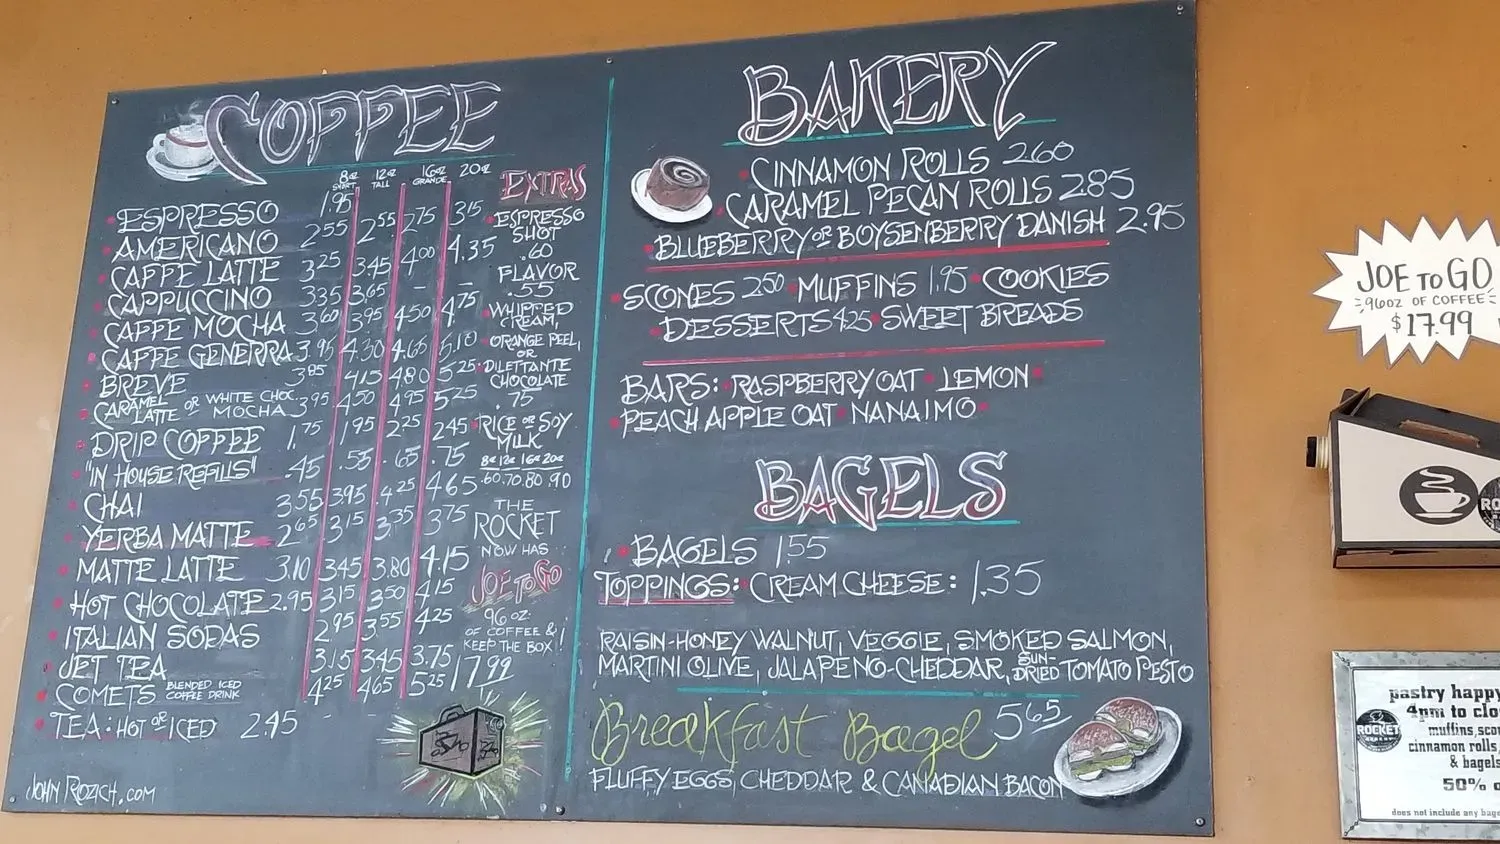 COFFEE
8oz 12oz 16oz 20oz
SHORT TALL GRANDE
ESPRESSO 1.95
AMERICANO 2.55 2.55 2.75 3.15
CAFFE LATTE 3.25 3.45 4.00 4.35
CAPPUCCINO 3.35 3.65 - -
CAFFE MOCHA 3.60 3.95 4.50 4.75
CAFFE GENERRA 3.95 4.30 4.65 5.10
BREVE 3.85 4.15 4.80 5.25
CARAMEL LATTE or WHITE CHOC. MOCHA 3.95 4.50 4.95 5.25
DRIP COFFEE 1.75 1.95 2.25 2.45
"IN HOUSE REFILLS" .45 .55 .65 .75
CHAI 3.55 3.95 4.25 4.65
YERBA MATTE 2.65 3.15 3.35 3.75
MATTE LATTE 3.10 3.45 3.80 4.15
HOT CHOCOLATE 2.95 3.15 3.50 4.15
ITALIAN SODAS 2.95 3.55 4.25
JET TEA 3.15 3.45 3.75
COMETS BLENDED ICED COFFEE DRINK 4.25 4.65 5.25
TEA: HOT or ICED 2.45
JOHN ROZICH.COM
EXTRAS
ESPRESSO
SHOT
.60
FLAVOR
.55
WHIPPED
CREAM,
ORANGE PEEL,
OR
DILETTANTE
CHOCOLATE
.75
RICE or SOY
MILK
8oz 12oz 16oz 20oz
.60 .70 .80 .90
THE
ROCKET
NOW HAS
JOE TO GO
96 OZ.
OF COFFEE &
KEEP THE BOX!
17.99
BAKERY
CINNAMON ROLLS 2.60
CARAMEL PECAN ROLLS 2.85
BLUEBERRY or BOYSENBERRY DANISH 2.95
SCONES 2.50 • MUFFINS 1.95 • COOKIES
DESSERTS 4.25 • SWEET BREADS
BARS: • RASPBERRY OAT • LEMON •
PEACH APPLE OAT • NANAIMO •
BAGELS
• BAGELS 1.55
TOPPINGS: CREAM CHEESE: 1.35
RAISIN-HONEY WALNUT, VEGGIE, SMOKED SALMON,
MARTINI OLIVE, JALAPENO-CHEDDAR, SUN-DRIED TOMATO PESTO
Breakfast Bagel 5.65
FLUFFY EGGS, CHEDDAR & CANADIAN BACON
JOE TO GO
96OZ OF COFFEE
$17.99
pastry happy
4pm to clo
ROCKET
muffins, sco
cinnamon rolls
& bagels
50% o
does not include any bage